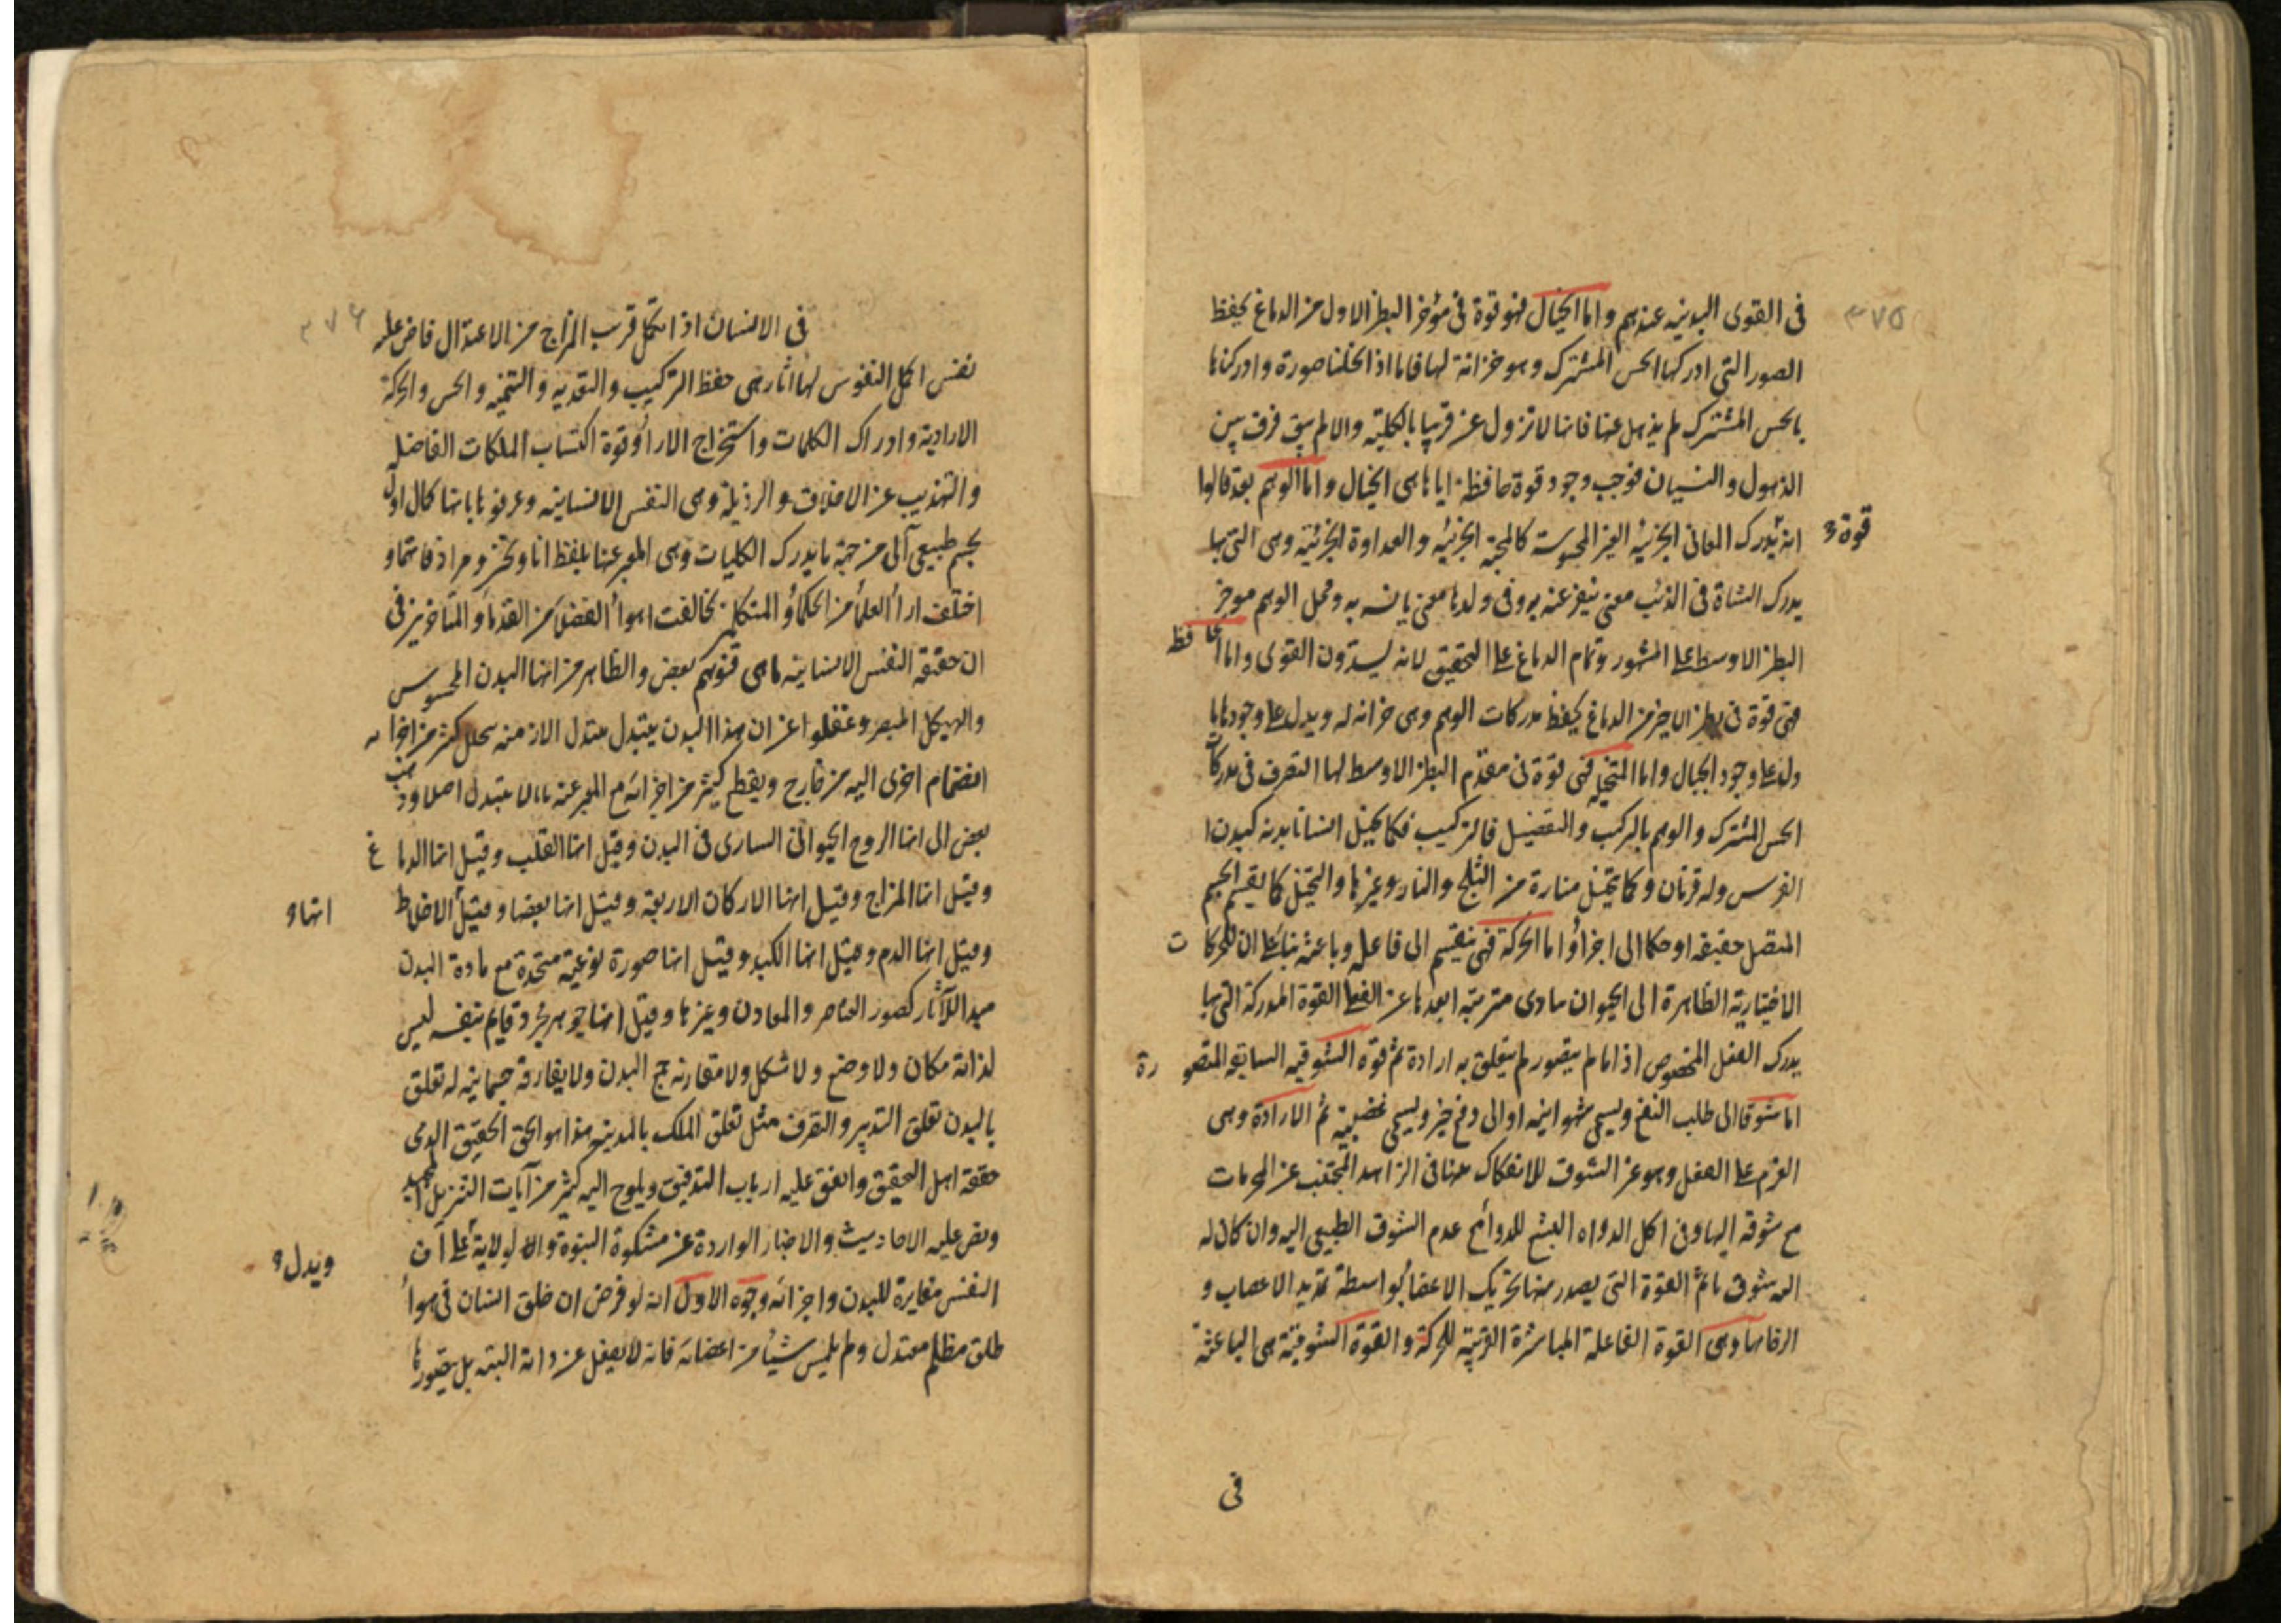 ٣٧٥
فى القوى البدنيه عندهم واما الخيال فهو قوة فى مؤخر البطن الاول من الدماغ يحفظ
الصور التى ادركها الحس المشترك وهو خزانة لها فاما اذا تخلنا صورة وادركناها
بالحس المشترك لم يذهل عنها فانها لا تزول عن قريبا بالكلية والا لم يبق فرق بين
الذهول والنسيان فوجب وجود قوة حافظة اياها هى الخيال واما الوهم بعد قالوا
انه يدرك المعانى الجزئيه الغير المحسوسة كالمحبة الجزئيه والعداوة الجزئية وهى التى بها
قوة
يدرك الشاة فى الذئب معنى ينفر عنه يرو فى ولدها معنى يانسه به ومحل الوهم موخر
البطن الاوسط على المشهور وتمام الدماغ على التحقيق لانه ليستدون القوى واما الحافظه
فهى قوة فى بطن الاخير من الدماغ يحفظ مدركات الوهم وهى خزانه له ويدل على وجودها با
دل على وجود الخيال واما المتخيله فهى قوة فى مقدم البطن الاوسط لها التصرف فى مدركات
الحس المشترك والوهم بالتركيب والتفصيل فالتركيب فكما يخيل انسانا بدنه كبدن ا
الفرس وله قرنان وكما يتخيل منارة من الثلج والنار وغيرها والتخيل كما يقسم الجسم
المتصل حقيقه او حكما الى اجزاء واما الحركة فهى ينقسم الى فاعله وباعثه بناء على ان للحركات
الاختياريه الظاهرة الى الحيوان مبادى مترتبه ابعدها عن الفعل القوة المدركة التى بها
يدرك الفعل المخصوص اذا ما لم يتصور لم يتعلق به ارادة ثم قوه الشوقيه السابقه المتصورة
اما شوقا الى طلب النفع ويسمى شهوانيه او الى دفع ضر ويسمى غضبية ثم الارادة وهى
العزم على الفعل وهو غر الشوق للانفكاك عنها فى الزاهد المجتنب عن المحرمات
مع شوقه اليها وفى اكل الدواه البشع للدوائج عدم الشوق الطبيعى اليه وان كان له
اله شوق ما ثم القوة التى يصدر منها تحريك الاعضاء بواسطة تمديد الاعصاب و
ارخائها وهى القوة الفاعلة المباشرة القريبة للحركة والقوة الشوقية هى الباعثة
فى
٣٧٦
فى الانسان اذا تكمل قرب المزاج من الاعتدال فاض عليه
نفس اكمل النفوس لها اثار هى حفظ التركيب والتغديه والتنميه والحس والحركة
الارادية وادراك الكلمات واستخراج الاراء وقوة اكتساب الملكات الفاضله
والتهذيب عن الاخلاق والرذيلة وهى النفس الانسانيه وعرفوها بانها كمال اول
لجسم طبيعى آلى من جهة ما يدرك الكليات وهى المعبر عنها بلفظ انا ونحن ومرادفاتهما و
اختلف اراء العلماء من الحكماء والمتكلمين تخالفت اهواء الفضلاء من القدماء والمتاخرين فى
ان حقيقه النفس الانسانيه ما هى فتوهم بعض والظاهر من انها البدن المحسوس
والهيكل المبصر وغفلوا عن ان هذا البدن يتبدل بتبدل الازمنه بتحلل كثير من اجزائه
انضمام اخرى اليه من خارج ويقطع كثير من اجزائه مع المعبر عنه بانا لا يتبدل اصلا وذهب
بعض الى انها الروح الحيوانى السارى فى البدن وقيل انها القلب وقيل انها الدماغ
وقيل انها المزاج وقيل انها الاركان الاربعه وقيل انها بعضها وقيل الاخلاط
انها و
وقيل انها الدم وقيل انها الكبد وقيل انها صورة نوعيه متحدة مع مادة البدن
مبدا للآثار كصور العناصر والمعادن وغيرها وقيل انها جوهر مجرد قايم بنفسه ليس
لذاته مكان ولا وضع ولا شكل ولا مقارنه مع البدن ولا يفارقه جسمانيه له تعلق
بالبدن تعلق التدبير والتصرف مثل تعلق الملك بالمدينه هذا هو الحق الحقيق الذى
حققه اهل التحقيق واتفق عليه ارباب التدقيق ويلوح اليه كثير من آيات التنزيل المجيد
ونص عليه الاحاديث والاخبار الواردة عن مشكوة النبوة والولاية على ان
ويدل و
النفس مغايرة للبدن واجزائه وجوه الاول انه لو فرض ان خلق انسان فى هواء
طلق مظلم معتدل ولم يلمس شيئا من اعضائه فانه لا يغفل عن ذاته البته بل يتصورها